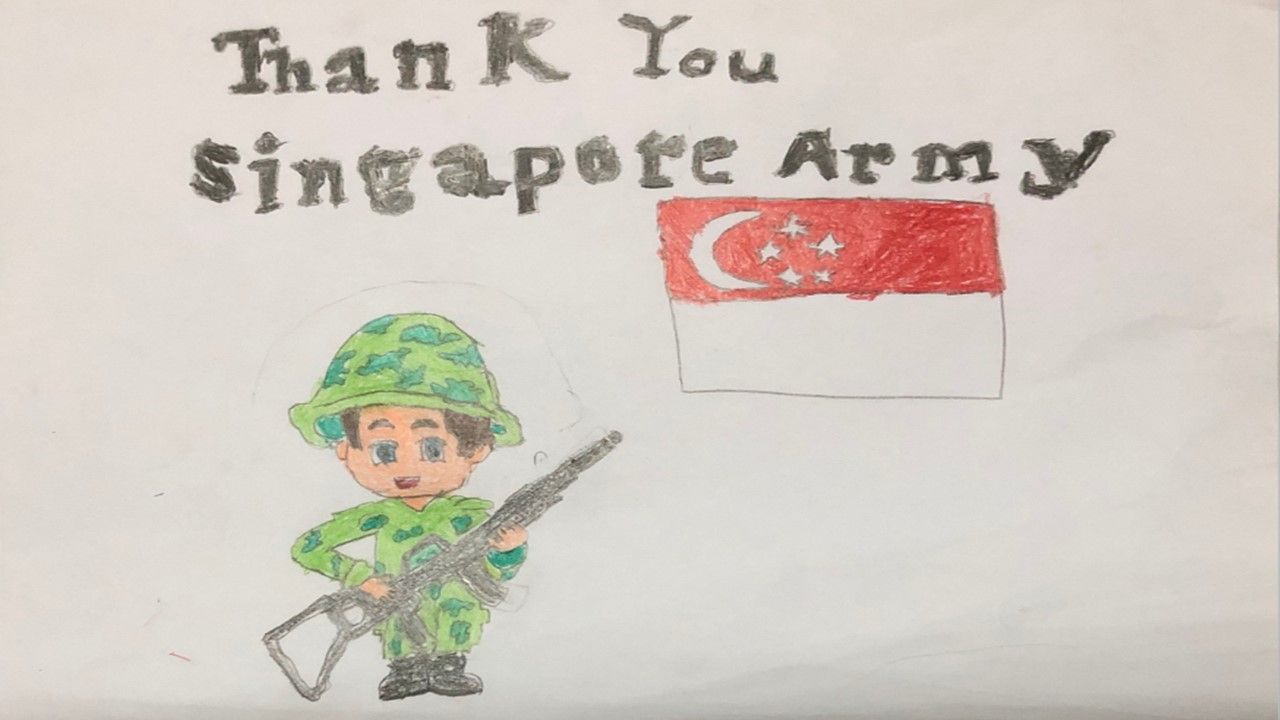 Thank You
Singapore Army